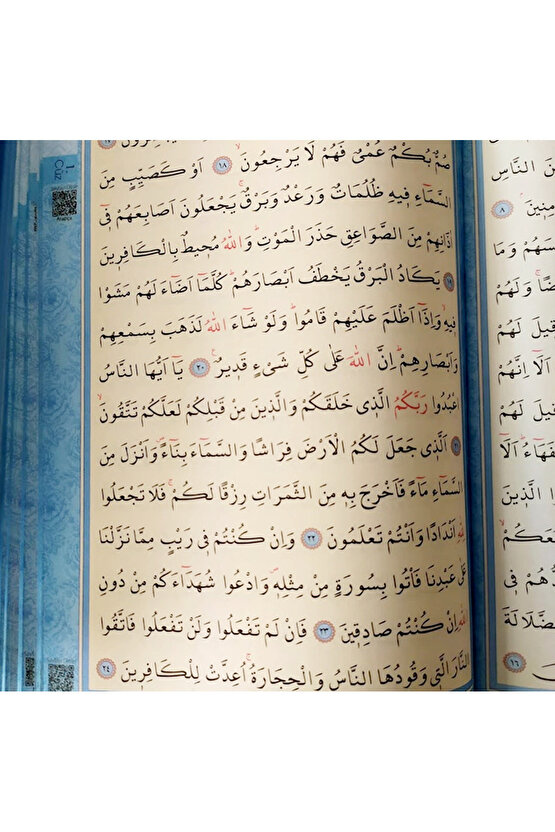 صُمٌّ بُكْمٌ عُمْىٌ فَهُمْ لَا يَرْجِعُونَۙ ﴿١٨﴾ اَوْ كَصَيِّبٍ مِنَ
السَّمَٓاءِ فٖيهِ ظُلُمَاتٌ وَرَعْدٌ وَبَرْقٌۚ يَجْعَلُونَ اَصَابِعَهُمْ فٖٓى
اٰذَانِهِمْ مِنَ الصَّوَاعِقِ حَذَرَ الْمَوْتِؕ وَاللّٰهُ مُحٖيطٌ بِالْكَافِرٖينَ
﴿١٩﴾ يَكَادُ الْبَرْقُ يَخْطَفُ اَبْصَارَهُمْؕ كُلَّمَٓا اَضَٓاءَ لَهُمْ مَشَوْا
فٖيهِۙ وَاِذَٓا اَظْلَمَ عَلَيْهِمْ قَامُواؕ وَلَوْ شَٓاءَ اللّٰهُ لَذَهَبَ بِسَمْعِهِمْ
وَاَبْصَارِهِمْؕ اِنَّ اللّٰهَ عَلٰى كُلِّ شَیْءٍ قَدٖيرٌ۟ ﴿٢٠﴾ يَٓا اَيُّهَا النَّاسُ
اعْبُدُوا رَبَّكُمُ الَّذٖى خَلَقَكُمْ وَالَّذٖينَ مِنْ قَبْلِكُمْ لَعَلَّكُمْ تَتَّقُونَۙ
اَلَّذٖى جَعَلَ لَكُمُ الْاَرْضَ فِرَاشًا وَالسَّمَٓاءَ بِنَٓاءًۖ وَاَنْزَلَ مِنَ
السَّمَٓاءِ مَٓاءً فَاَخْرَجَ بِهٖ مِنَ الثَّمَرَاتِ رِزْقًا لَكُمْۚ فَلَا تَجْعَلُوا
لِلّٰهِ اَنْدَادًا وَاَنْتُمْ تَعْلَمُونَ ﴿٢٢﴾ وَاِنْ كُنْتُمْ فٖى رَيْبٍ مِمَّا نَزَّلْنَا
عَلٰى عَبْدِنَا فَاْتُوا بِسُورَةٍ مِنْ مِثْلِهٖ وَادْعُوا شُهَدَٓاءَكُمْ مِنْ دُونِ
اللّٰهِ اِنْ كُنْتُمْ صَادِقٖينَ ﴿٢٣﴾ فَاِنْ لَمْ تَفْعَلُوا وَلَنْ تَفْعَلُوا فَاتَّقُوا
النَّارَ الَّتٖى وَقُودُهَا النَّاسُ وَالْحِجَارَةُۚ اُعِدَّتْ لِلْكَافِرٖينَ ﴿٢٤﴾
1. Cüz
نَ النَّاسِ
﴿٨﴾
وَمَا
وَلَهُمْ
قٖيلَ لَهُمْ
اَلَٓا اِنَّهُمْ
قٖيلَ لَهُمْ
اَلَٓا
الَّذٖينَ
فٖى
﴿١٦﴾